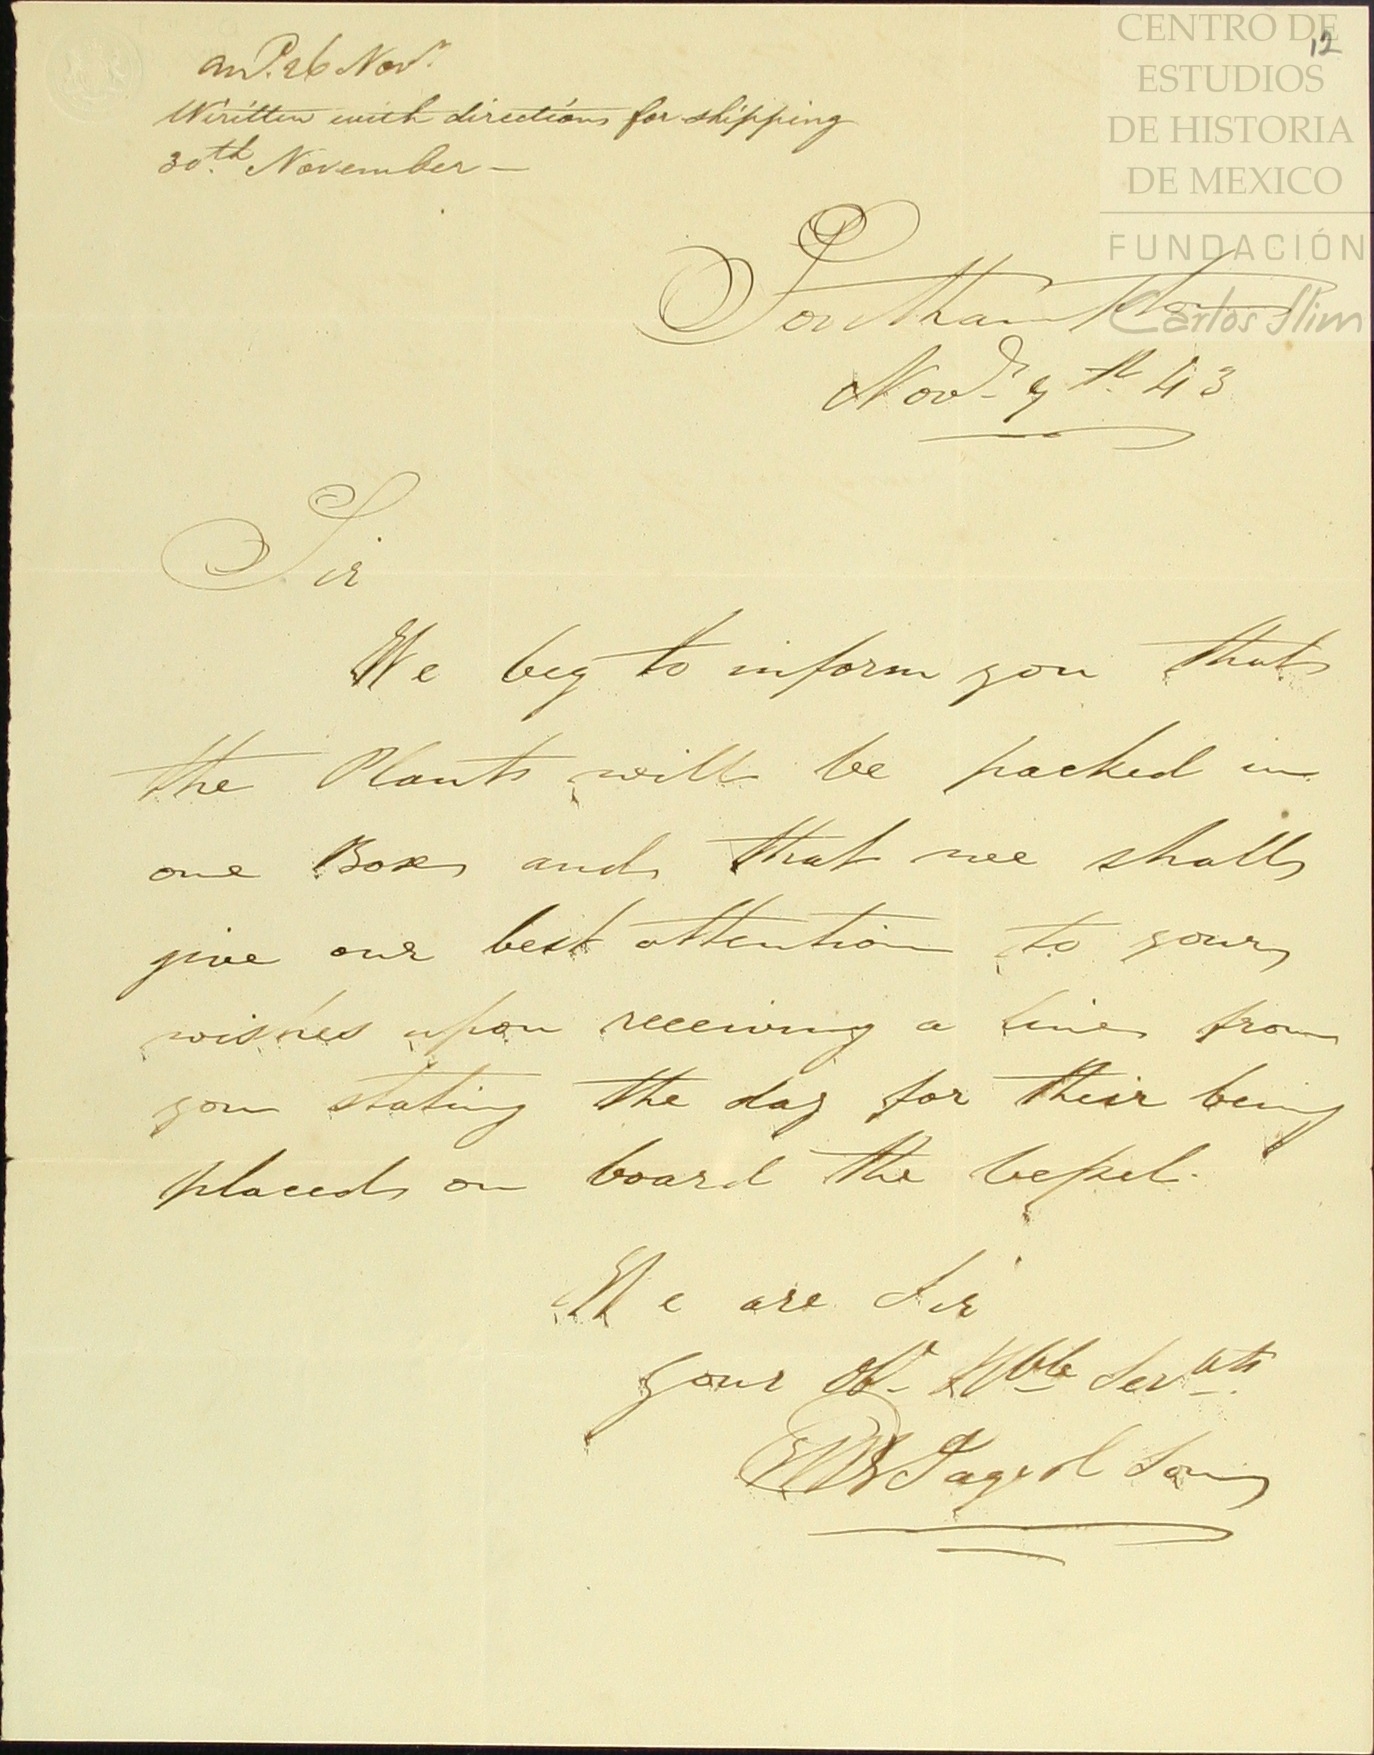 12
CENTRO DE
ESTUDIOS
DE HISTORIA
DE MEXICO
FUNDACIÓN
Carlos Slim
26 Novr.
Written with directions for shipping
30th. November —
Southampton
Novr. 7th. 43
Sir
We beg to inform you that
the Plants will be packed in
one Box and that we shall
give our best attention to your
wishes upon receiving a line from
you stating the day for their being
placed on board the Vessel.
We are Sir
your Obt. Hble Servnts.
Page & Sons